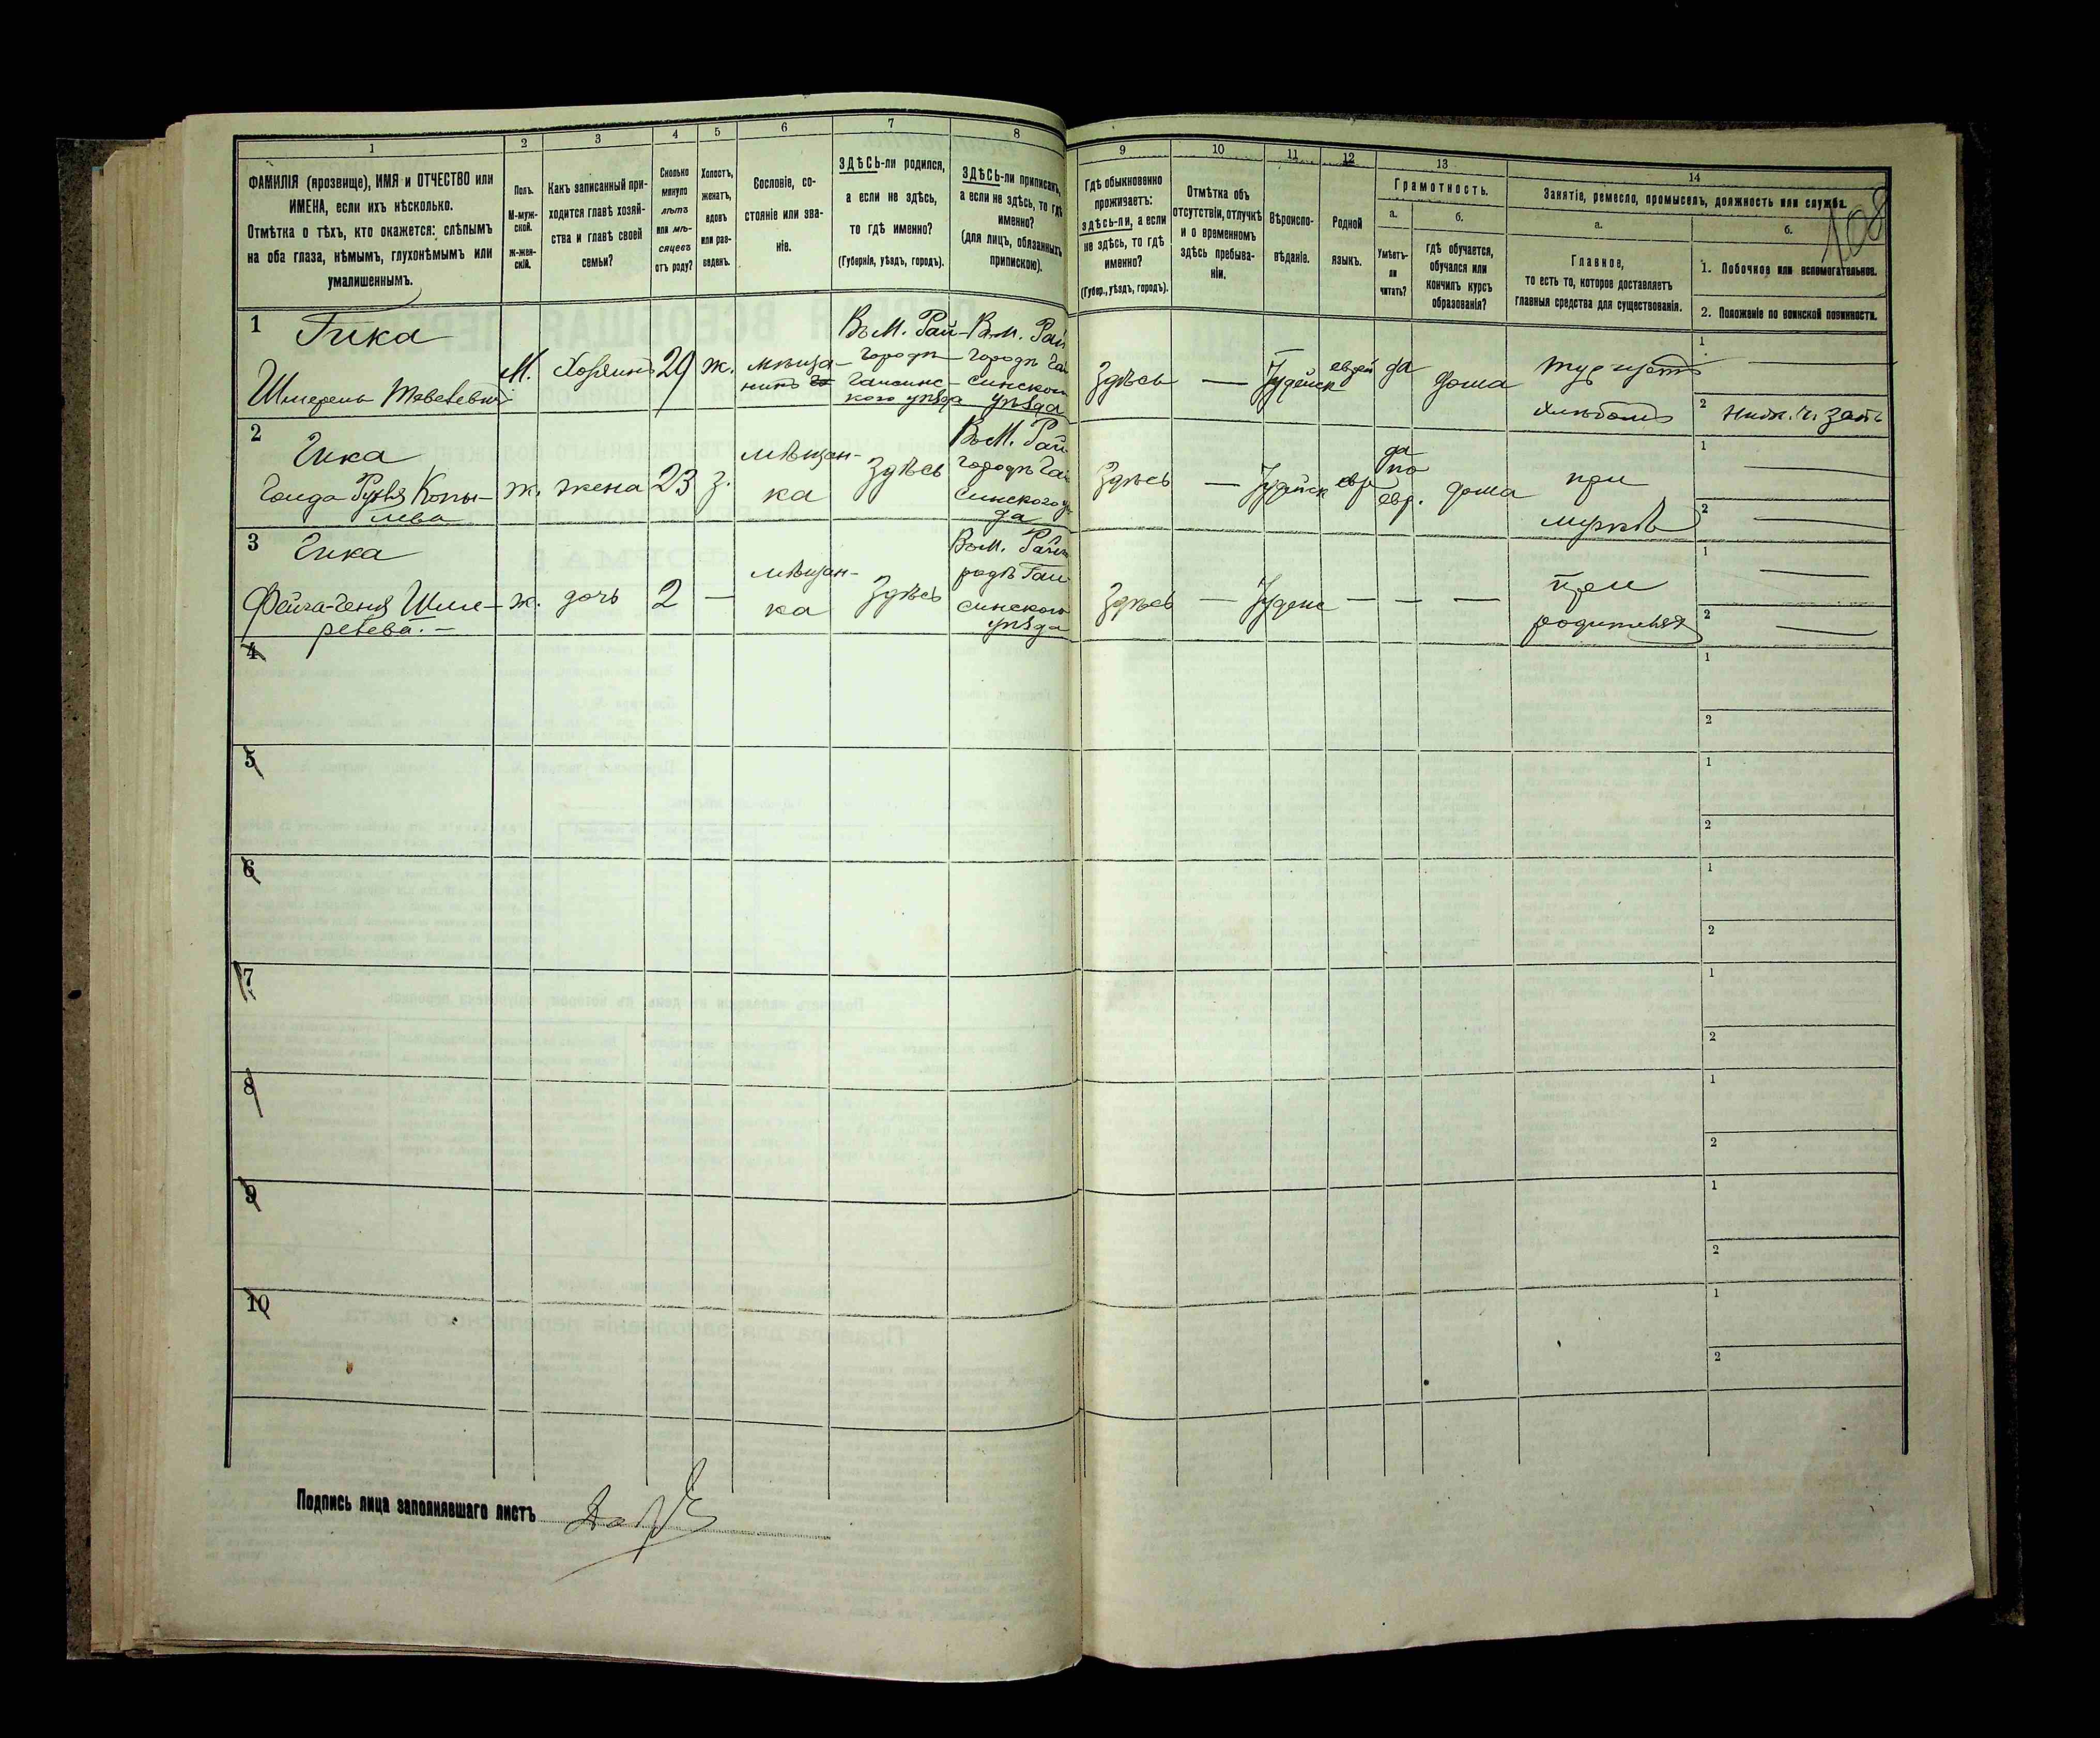 1 2 3 4 5 6 7 8 9 10 11 12 13 14
ФАМИЛІЯ (прозвище), ИМЯ и ОТЧЕСТВО или
ИМЕНА, если ихъ нѣсколько.
Отмѣтка о тѣхъ, кто окажется: слѣпымъ
на оба глаза, нѣмымъ, глухонѣмымъ или
умалишеннымъ.
Полъ.
М-муж-
ской.
Ж-жен-
скій.
Какъ записанный при-
ходится главѣ хозяй-
ства и главѣ своей
семьи?
Сколько
минуло
лѣтъ
или мѣ-
сяцевъ
отъ роду?
Холостъ,
женатъ,
вдовъ
или раз-
веденъ.
Сословіе, со-
стояніе или зва-
ніе.
ЗДѢСЬ-ли родился,
а если не здѣсь,
то гдѣ именно?
(Губернія, уѣздъ, городъ).
ЗДѢСЬ-ли приписанъ,
а если не здѣсь, то гдѣ
именно?
(для лицъ, обязанныхъ
припискою).
Гдѣ обыкновенно
проживаетъ:
здѣсь-ли, а если
не здѣсь, то гдѣ
именно?
(Губер., уѣздъ, городъ).
Отмѣтка объ
отсутствіи, отлучкѣ
и о временномъ
здѣсь пребыва-
ніи.
Вѣроиспо-
вѣданіе.
Родной
языкъ.
Грамотность.
а.
Умѣетъ-
ли
читать?
б.
Гдѣ обучается,
обучался или
кончилъ курсъ
образованія?
Занятіе, ремесло, промыселъ, должность или служба.
а.
Главное,
то есть то, которое доставляетъ
главныя средства для существованія.
б.
1. Побочное или вспомогательное.
2. Положеніе по воинской повинности.
108
1 Гика
М. Хозяинъ 29 ж. мѣща-
Въ М. Рай-
городѣ
Гайсинс-
каго уѣзда
Въ М. Рай
городѣ Га
синскаго
уѣзда
Здѣсь — Іудейск еврей да дома
торгуетъ
хлѣбомъ
1 —
2
2 Гика
ж. жена 23 з. мѣщан-
ка Здѣсь
Въ М. Рай
городѣ Га
синского
Здѣсь — Іудейск евр да
по
евр. дома при
мужѣ
1 —
2 —
3 Гика
Фейга-Геня Шме-
релева. —
ж. дочь 2 — мѣщан-
ка Здѣсь
Въ М. Райго
родѣ Гай
синского
уѣзда
Здѣсь — Іудейс — — — при
родителях
1 —
2 —
4
1
2
5
1
2
6
1
2
7
1
2
8
1
2
9
1
2
10
1
2
Подпись лица заполнявшаго листъ